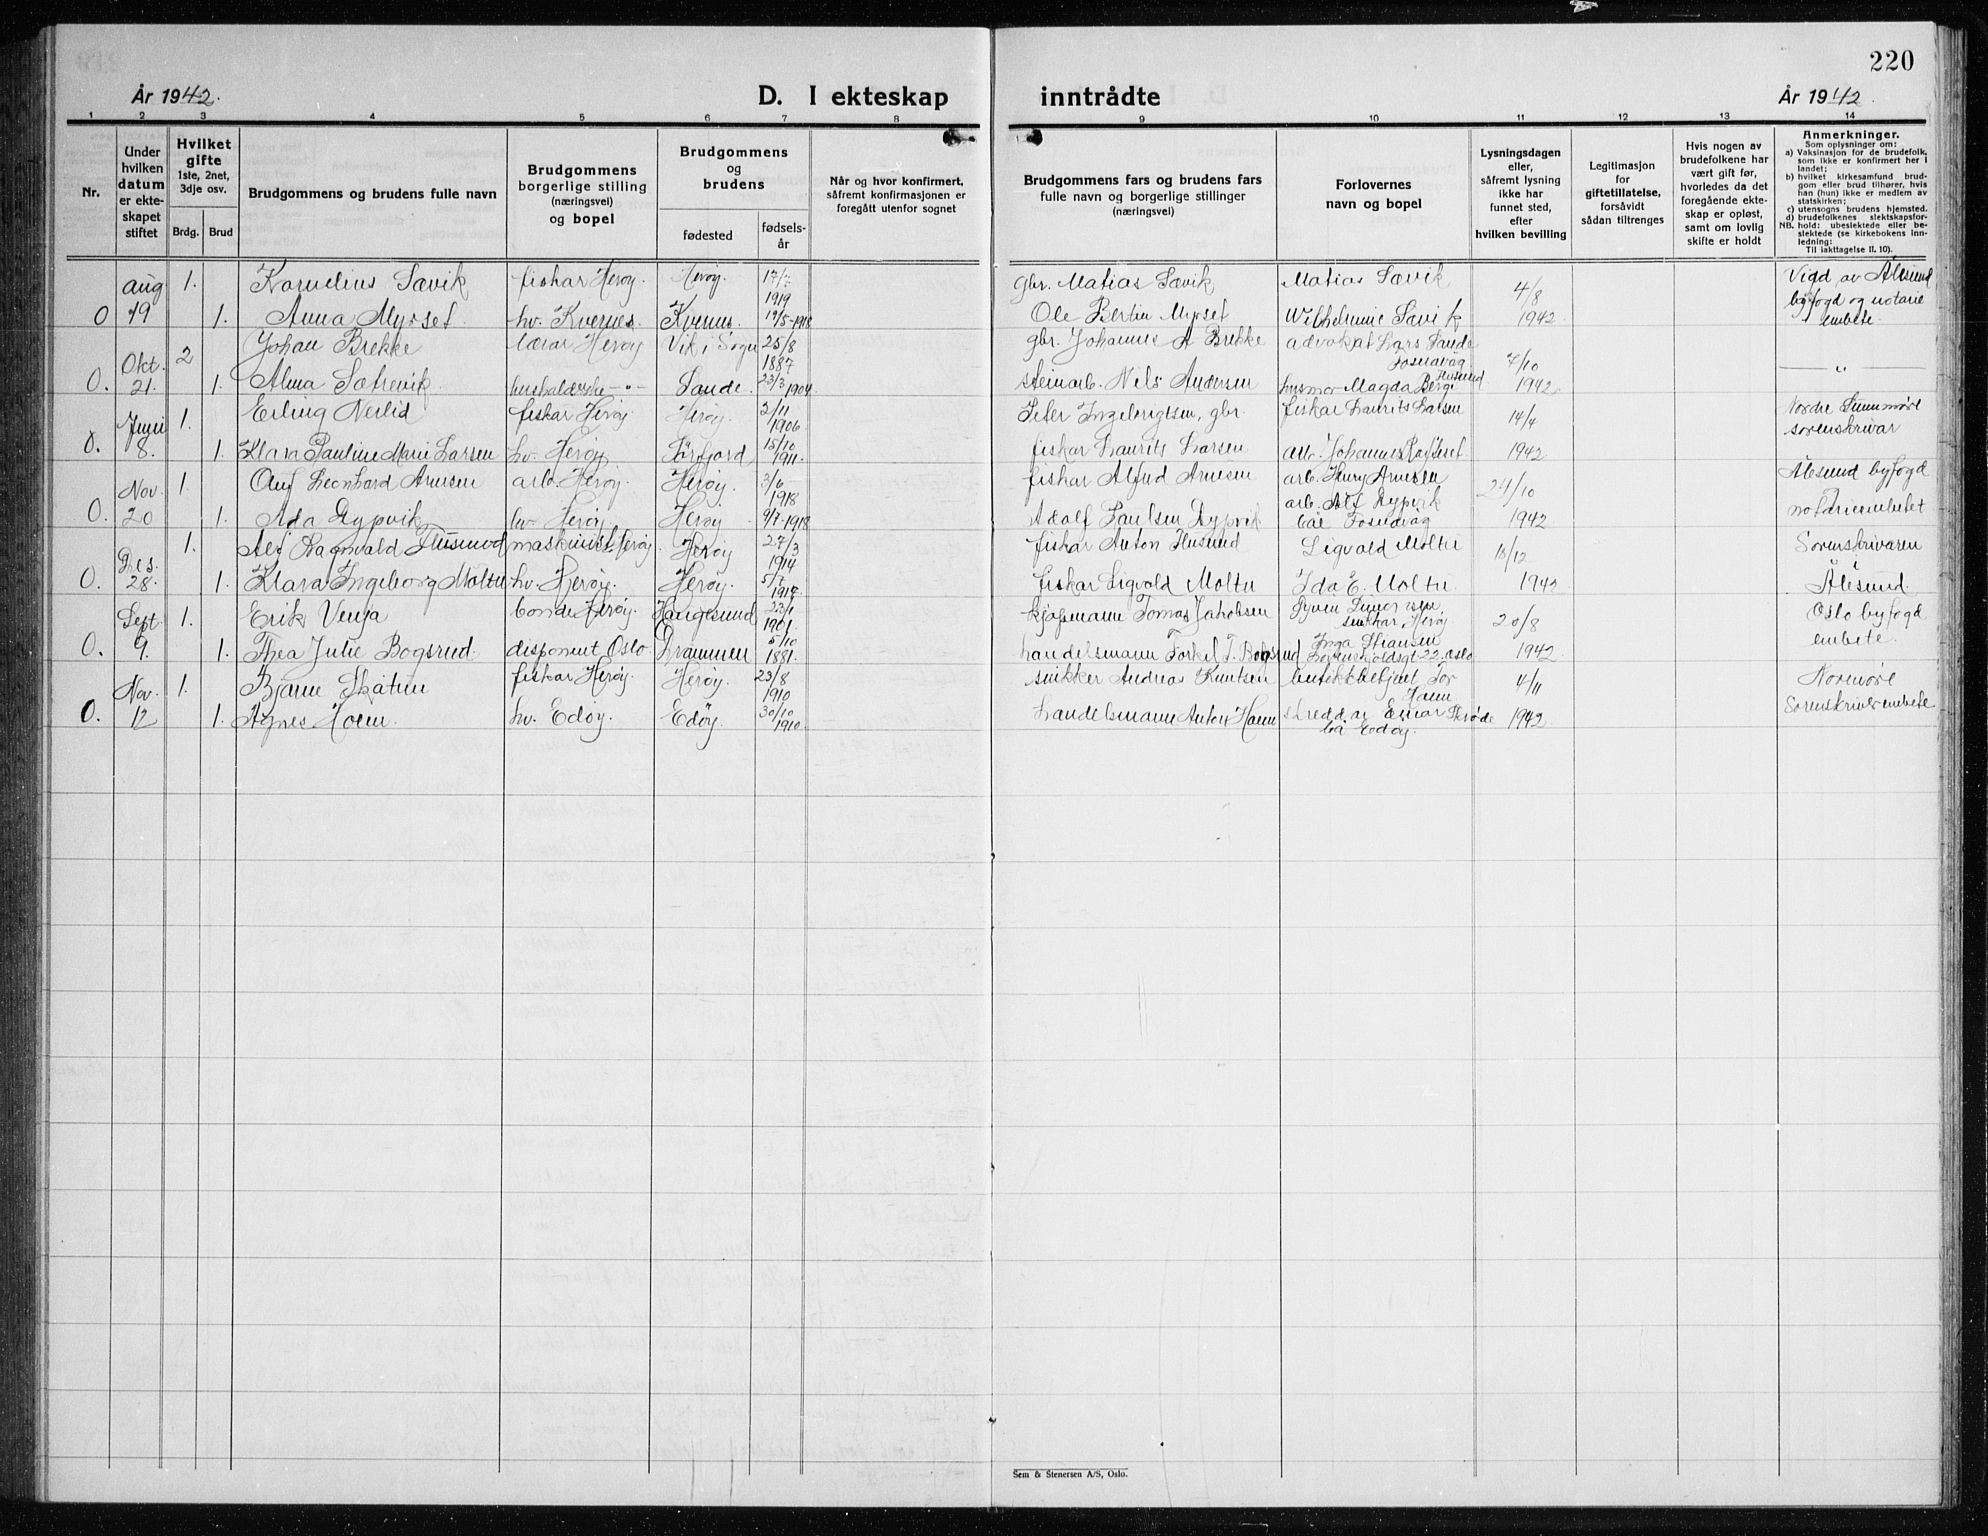 220
År 1942.
D. I ekteskap inntrådte
År 1942.
1 2 3 4 5 6 7 8 9 10 11 12 13 14
Nr.
Under hvilken datum er ekteskapet stiftet
Hvilket gifte 1ste, 2net, 3dje osv.
Brdg. Brud
Brudgommens og brudens fulle navn
Brudgommens borgerlige stilling (næringsvei) og bopel
Brudgommens og brudens
fødested
fødselsår
Når og hvor konfirmert, såfremt konfirmasjonen er foregått utenfor sognet
Brudgommens fars og brudens fars fulle navn og borgerlige stillinger (næringsvei)
Forlovernes navn og bopel
Lysningsdagen eller, såfremt lysning ikke har funnet sted, efter hvilken bevilling
Legitimasjon for giftetillatelse, forsåvidt sådan tiltrenges
Hvis nogen av brudefolkene har vært gift før, hvorledes da det foregående ekteskap er opløst, samt om lovlig skifte er holdt
Anmerkninger.
Som oplysninger om:
a) Vaksinasjon for de brudefolk, som ikke er konfirmert her i landet;
b) hvilket kirkesamfund brudgom eller brud tilhører, hvis han (hun) ikke er medlem av statskirken;
c) utensogns brudens hjemsted.
d) brudefolkenes slektskapsforhold: ubeslektede eller beslektede (se kirkebokens innledning:
NB. Til iakttagelse II. 10).
aug 1. Kornelius Sævik fiskar Herøy. Herøy. 17/7 1919 gbr. Matias Sævik Matias Sævik 4/8 Vigd av Ålesund
0 19 1. Anna Myrset hv. Kvernes. Kvernes. 19/5-1918 Ole Bertin Myrset Wilhelmine Sævik 1942 byfogd og notarie embete.
Okt. 2 Johan Brekke lærar Herøy Vik i Sogn 25/8 1887 gbr. Johannes A Brekke advokat Lars Sande Fosnavåg 7/10
0. 21. 1. Alma Sætrevik husholderske -"- Sande. 23/3 1904 steinarb. Nils Andersen husmor Magda Berge 1942 — " —
Juni 1. Erling Nerlid fiskar Herøy Herøy 2/11 1906 Peter Ingebrigtsen, gbr. fiskar Laurits Larsen 14/4 Nordre Sunnmøre
0. 8. 1. Klara Pauline Marie Larsen hv. Herøy 15/10 1911. fiskar Laurits Larsen arb. Johannes 1942. sorenskrivar
Nov. 1. Olaf Leonhard Arnesen arb. Herøy. Herøy. 3/6 1918 fiskar Alfred Arnesen arb. Henry Arnesen 24/10 Ålesund byfogd
0. 20 1. Ada Rypvik hv. Herøy Herøy 9/7-1918 Adolf Paulsen Rypvik arb. Alf Rypvik båe Fosnavåg 1942 notariembetet
Des. 1. Alf Ragnvald Husund maskinist Herøy Herøy 27/3 1914 fiskar Anton Husund Sigvald Moltu 10/12 Sorenskrivaren
0. 28. 1. Klara Ingeborg Moltu hv. Herøy. Herøy. 5/7 1917. fiskar Sigvald Moltu Ida E. Moltu 1942 Ålesund.
Sept. 1. Erik Venja bonde Herøy. Haugesund 23/1 1901. kjøpmann Tomas Jakobsen snikkar, Herøy. 20/8 Oslo byfogd
0. 9. 1. Thea Julie Bogsrud disponent Oslo Drammen 5/10 1881. handelsmann Torkel T. Bogsrud Inga Stiansen 22. Oslo 1942. embete.
Nov. 1. Bjarne Skåtun fiskar Herøy. Herøy. 23/8 1910 snikker Andreas Knutsen butikkbetjent Tor Hoem 4/11 Nordmøre
0. 12 1. Agnes Hoem. hv. Edøy. Edøy. 30/10 1910. handelsmann Anton Hoem skreddar Einar båe Edøy. 1942. Sorenskriverembete
Sem & Stenersen A/S, Oslo.